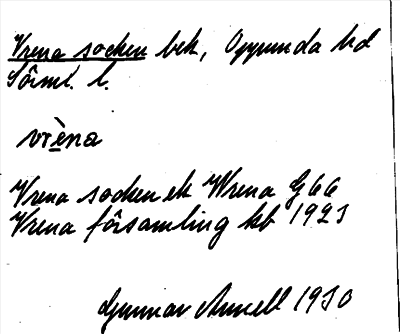 Vrena socken bek, Oppunda hd
Sörml. l.
vrèna
Vrena socken ek Wrena G66
Vrena församling kb 1923
Gunnar Arnell 1930